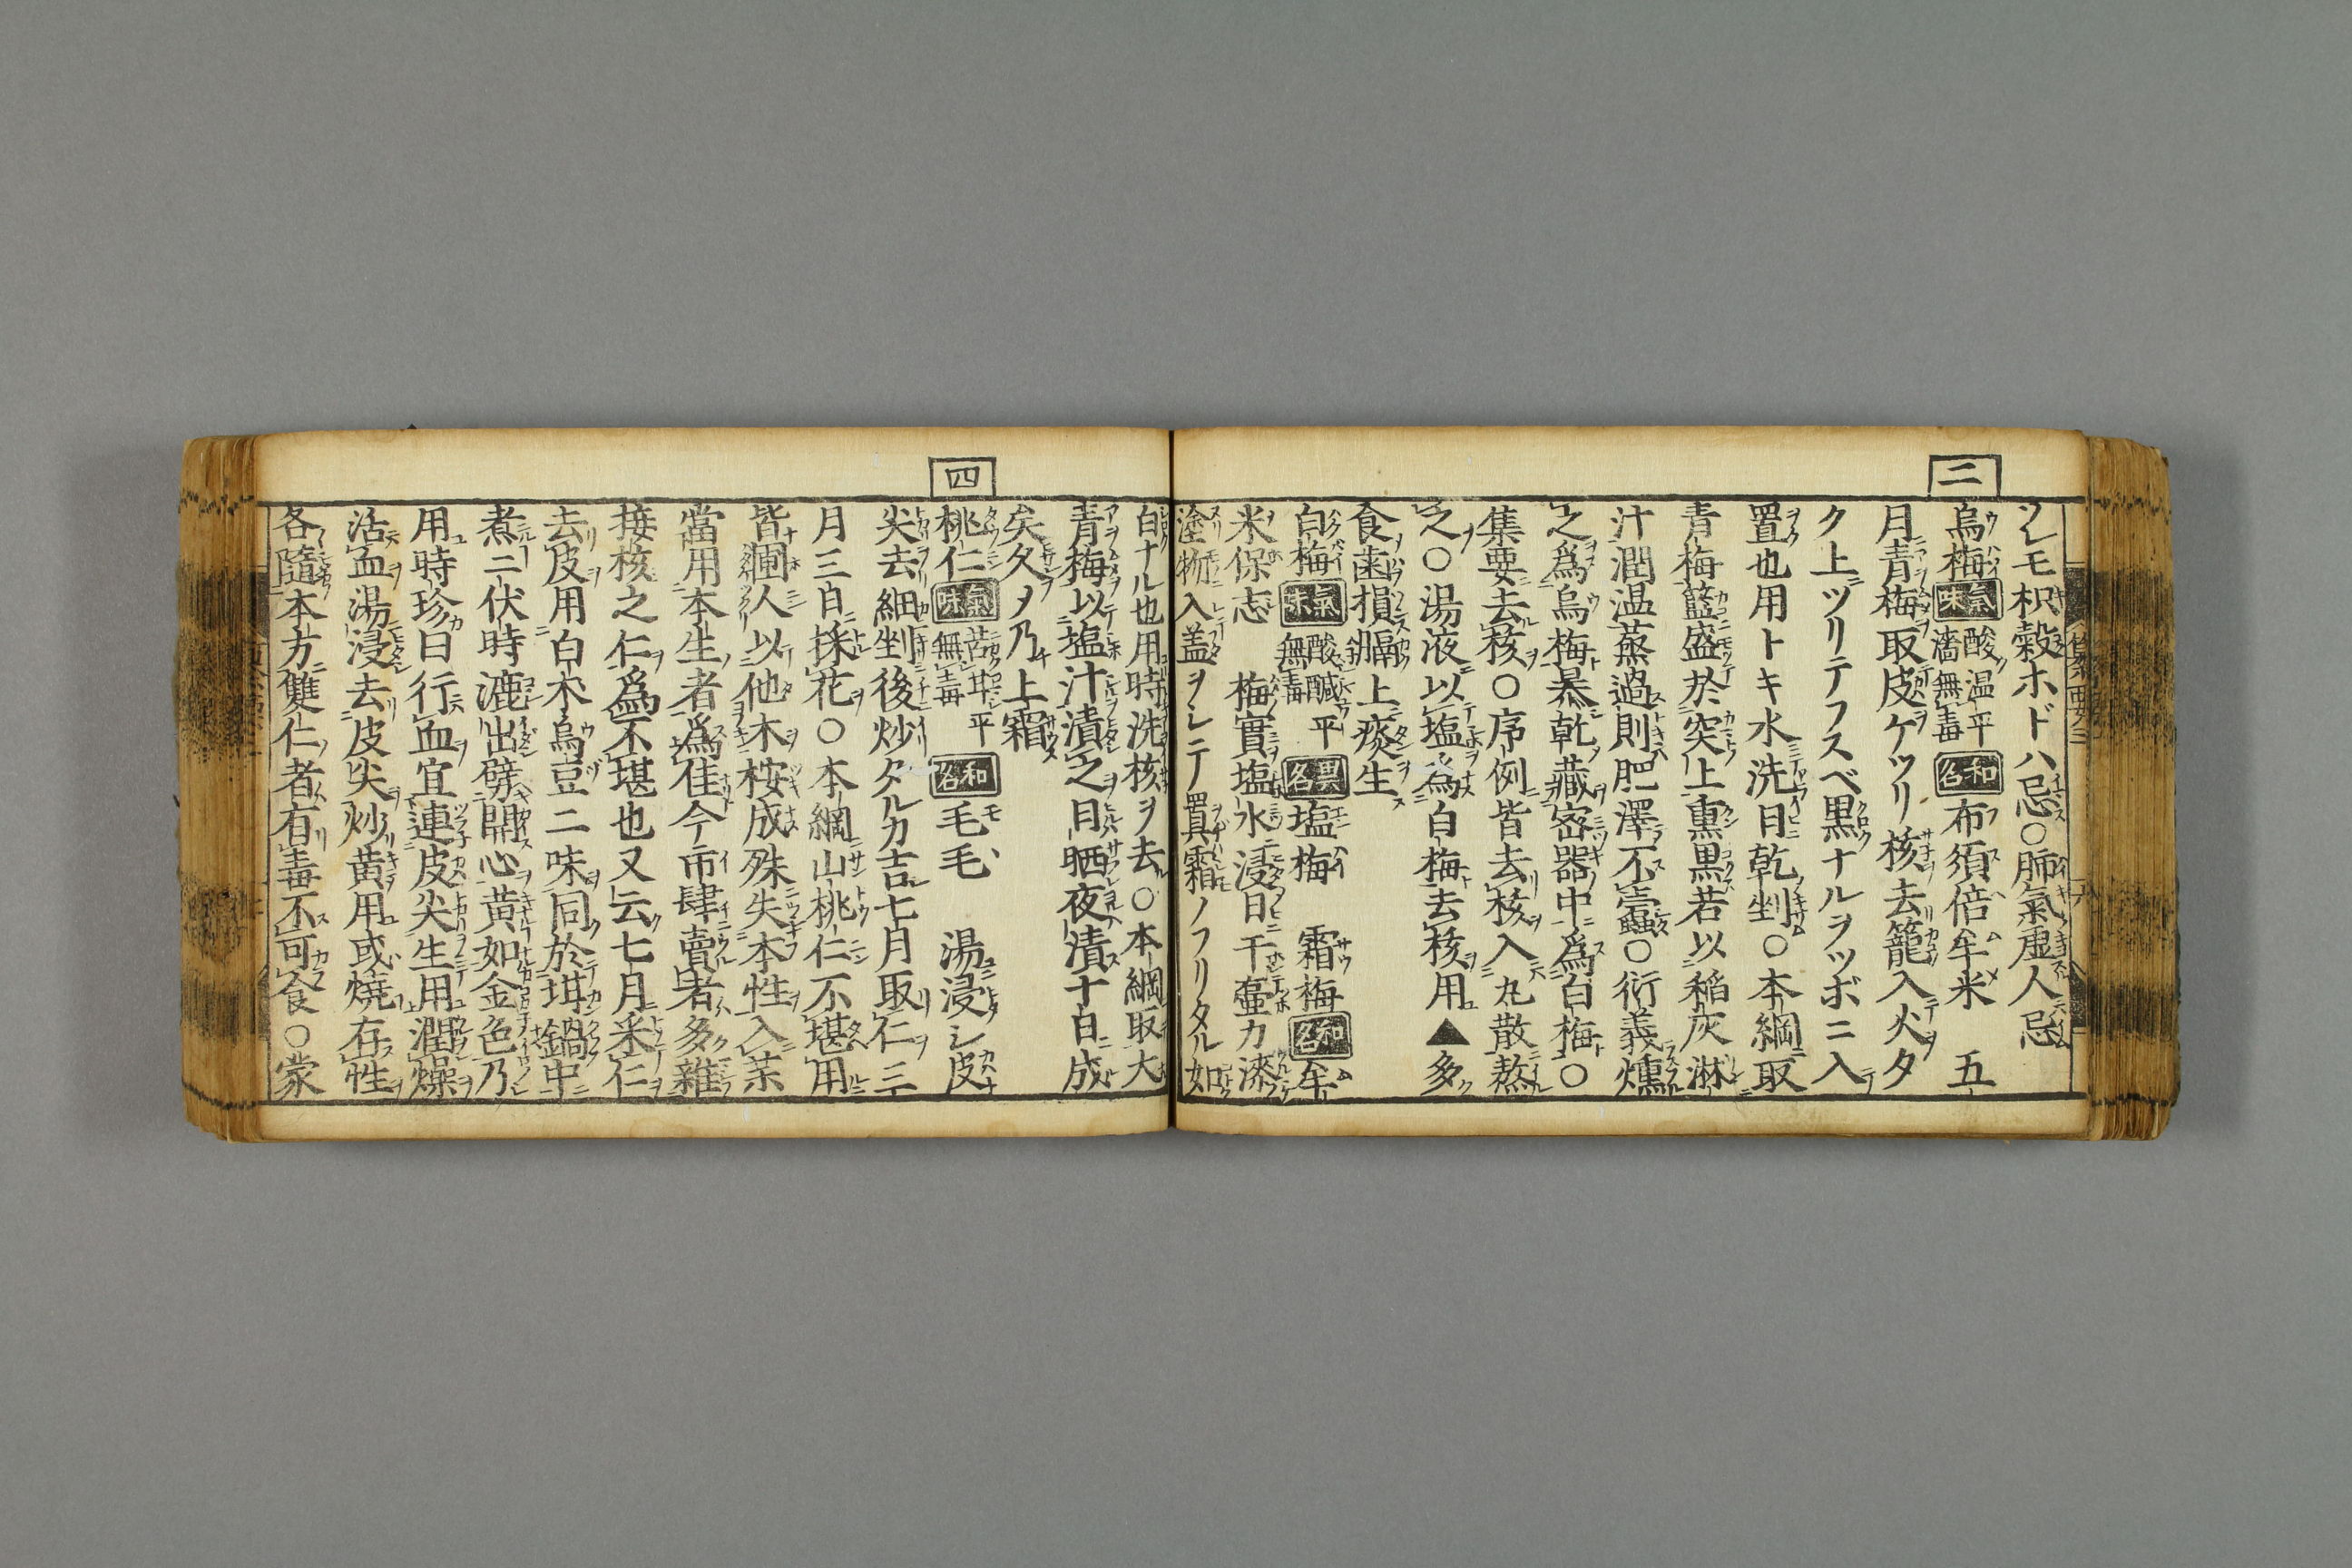 二
ソレモ枳穀ホドハ忌○肺氣虚人忌
烏梅 氣味 酸温平濇無毒 和名 布須倍牟米 五
月青梅取皮ケヅリ核去籠入火タ
ク上ヅリテフスベ黒ナルヲツボニ入
置也用トキ水洗日乾剉○本綱取
青梅籃盛於突上熏黒若以稲灰淋
汁潤温蒸過則肥澤不蠧○衍義燻
之爲烏梅暴乾藏密器中爲白梅○
集要去核○序例皆去核入丸散熬
之○湯液以塩為白梅去核用▲多
食歯損膈上痰生
白梅 氣味 酸醎平無毒 異名 塩梅 霜梅 和名 牟
米保志 梅實塩水浸日干壷カ漆
塗物入盖ヲシテ置霜ノフリタル如
四
白ナル也用時洗核ヲ去○本綱取大
青梅以塩汁漬之日晒夜漬十日成
矣久ノ乃上霜
桃仁 氣味 苦甘平無毒 和名 毛毛 湯浸シ皮
尖去細剉後炒タルカ吉七月取仁三
月三日採花○本綱山桃仁不堪用
皆圃人以他木桉成殊失本性入茶
當用本生者爲佳今市肆賣者多雜
接核之仁爲不堪也又云七月采仁
去皮用白朮烏豆二味同於坩鍋中
煮二伏時漉出劈開心黄如金色乃
用時珍曰行血宜連皮尖生用潤燥
活血湯浸去皮尖炒黄用或燒存性
各隨本方雙仁者有毒不可食○蒙